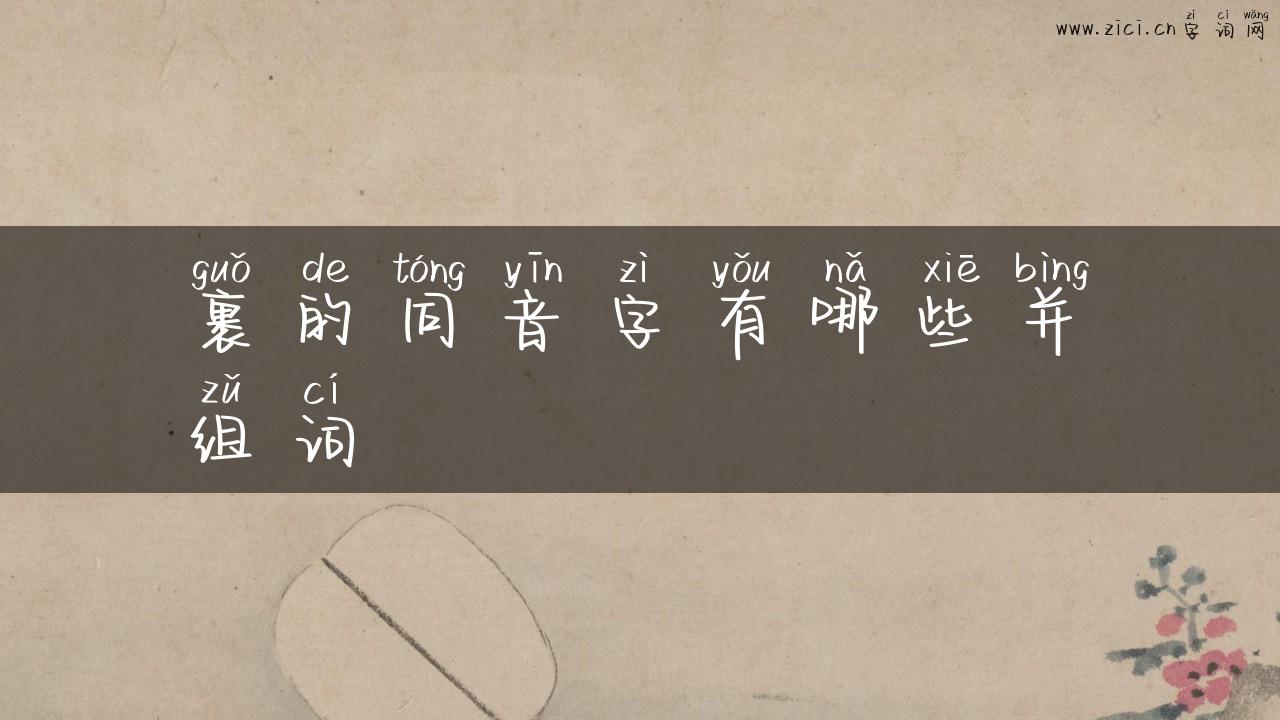 zì cí wǎng
www.zici.cn字词网
guǒ de tóng yīn zì yǒu nǎ xiē bìng
裹的同音字有哪些并
zǔ cí
组词